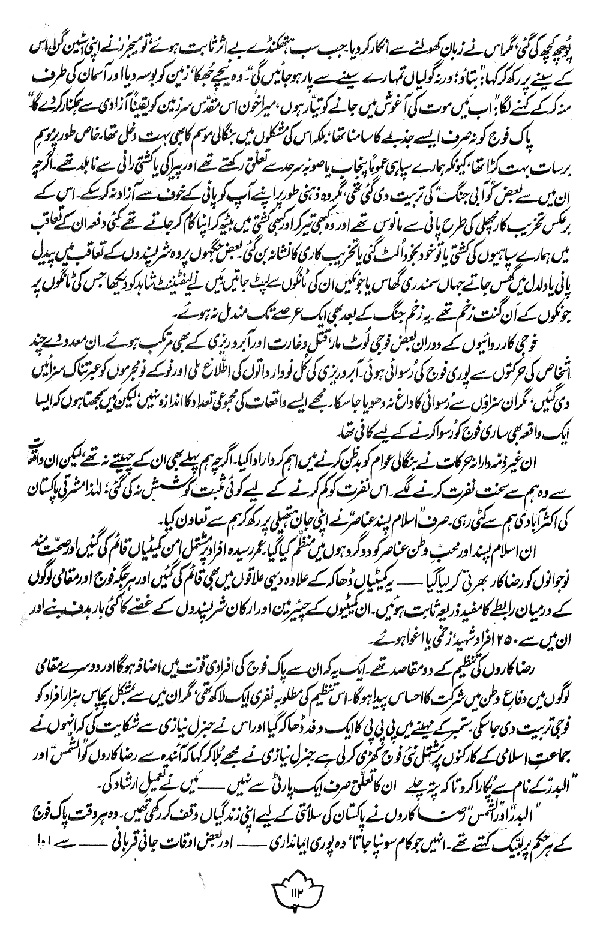 پوچھ گچھ کی گئی، مگر اس نے زبان کھولنے سے انکار کر دیا۔ جب سب ہتھکنڈے بے اثر ثابت ہوئے تو میجر نے اپنی سٹین گن اس
کے سینے پر رکھ کر کہا: "بتا دو! ورنہ گولیاں تمہارے سینے سے پار ہو جائیں گی"۔ وہ نیچے جھکا، زمین کو بوسہ دیا اور آسمان کی طرف
منہ کر کے کہنے لگا: "اب میں موت کی آغوش میں جانے کو تیار ہوں، میرا خون اس مقدس سرزمین کو یقیناً آزادی سے ہمکنار کرے گا"
پاک فوج کو نہ صرف ایسے جذبے کا سامنا تھا، بلکہ اس کی مشکلوں میں بنگالی موسم کا بھی بہت دخل تھا، خاص طور پر موسم
برسات بہت کڑا تھا، کیونکہ ہمارے سپاہی عموماً پنجاب یا صوبہ سرحد سے تعلق رکھتے تھے اور تیراکی یا کشتی رانی سے نابلد تھے۔ اگرچہ
ان میں سے بعض کو "آبی جنگ" کی تربیت دی گئی تھی، مگر وہ ذہنی طور پر اپنے آپ کو پانی کے خوف سے آزاد نہ کر سکے۔ اس کے
برعکس تخریب کار مچھلی کی طرح پانی سے مانوس تھے اور وہ کبھی تیر کر اور کبھی کشتی میں بیٹھ کر اپنا کام کر جاتے تھے۔ کئی دفعہ ان کے تعاقب
میں ہمارے سپاہیوں کی کشتی یا تو خود بخود الٹ گئی یا تخریب کاری کا نشانہ بن گئی۔ بعض جگہوں پر وہ شرپسندوں کے تعاقب میں پیدل
پانی یا دلدل میں گھس جاتے جہاں سمندری گھاس یا جونکیں ان کی ٹانگوں سے لپٹ جاتیں۔ میں نے لیفٹیننٹ شاہد کو دیکھا جس کی ٹانگوں پر
جونکوں کے ان گنت زخم تھے۔ یہ زخم جنگ کے بعد بھی ایک عرصے تک مندمل نہ ہوئے۔
فوجی کارروائیوں کے دوران بعض فوجی لوٹ مار، قتل و غارت اور آبرو ریزی کے بھی مرتکب ہوئے۔ ان معدودے چند
اشخاص کی حرکتوں سے پوری فوج کی رسوائی ہوئی۔ آبرو ریزی کی کل نو وارداتوں کی اطلاع ملی اور نو کے نو مجرموں کو عبرتناک سزائیں
دی گئیں، مگر ان سزاؤں سے رسوائی کا داغ نہ دھویا جا سکا۔ مجھے ایسے واقعات کی مجموعی تعداد کا اندازہ نہیں، لیکن میں سمجھتا ہوں کہ ایسا
ایک واقعہ بھی ساری فوج کو رسوا کرنے کے لیے کافی تھا۔
ان غیر ذمہ دارانہ حرکات نے بنگالی عوام کو بدظن کرنے میں اہم کردار ادا کیا۔ اگرچہ ہم پہلے بھی ان کے چہیتے نہ تھے، لیکن ان واقعات
سے وہ ہم سے سخت نفرت کرنے لگے۔ اس نفرت کو کم کرنے کے لیے کوئی مثبت کوشش نہ کی گئی، لہٰذا مشرقی پاکستان
کی اکثر آبادی ہم سے کٹی رہی۔ صرف "اسلام پسند عناصر" نے اپنی جان ہتھیلی پر رکھ کر ہم سے تعاون کیا۔
ان اسلام پسند اور محب وطن عناصر کو دو گروہوں میں منظم کیا گیا۔ عمر رسیدہ افراد پر مشتمل امن کمیٹیاں قائم کی گئیں اور صحت مند
نوجوانوں کو رضا کار بھرتی کر لیا گیا —— یہ کمیٹیاں ڈھاکہ کے علاوہ دیہی علاقوں میں بھی قائم کی گئیں اور ہر جگہ فوج اور مقامی لوگوں
کے درمیان رابطے کا مفید ذریعہ ثابت ہوئیں۔ ان کمیٹیوں کے چیئرمین اور ارکان شرپسندوں کے غصے کا کئی بار ہدف بنے اور
ان میں سے ۲۵۰ افراد شہید، زخمی یا اغوا ہوئے۔
رضا کاروں کی تنظیم کے دو مقاصد تھے۔ ایک یہ کہ ان سے پاک فوج کی افرادی قوت میں اضافہ ہوگا اور دوسرے مقامی
لوگوں میں دفاع وطن میں شرکت کا احساس پیدا ہوگا۔ اس تنظیم کی مطلوبہ نفری ایک لاکھ تھی، مگر ان میں سے بمشکل پچاس ہزار افراد کو
فوجی تربیت دی جا سکی۔ ستمبر کے مہینے میں پی پی پی کا ایک وفد ڈھاکہ گیا اور اس نے جنرل نیازی سے شکایت کی کہ انہوں نے
جماعت اسلامی کے کارکنوں پر مشتمل نئی فوج کھڑی کر لی ہے۔ جنرل نیازی نے مجھے بلا کر کہا کہ آئندہ سے رضا کاروں کو "الشمس" اور
"البدر" کے نام سے پکارا کرو تاکہ پتہ چلے ان کا تعلق صرف ایک پارٹی سے نہیں —— میں نے تعمیل ارشاد کی۔
"البدر" اور "الشمس" رضا کاروں نے پاکستان کی سلامتی کے لیے اپنی زندگیاں وقف کر رکھی تھیں۔ وہ ہر وقت پاک فوج
کے ہر حکم پر لبیک کہتے تھے۔ انہیں جو کام سونپا جاتا، وہ پوری ایمانداری —— اور بعض اوقات جانی قربانی —— سے ادا
۱۱۲